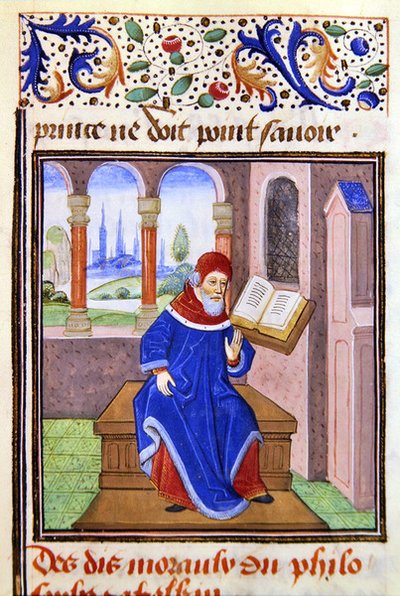 prince ne doit point sauoir .
Des dis moraulx du philo